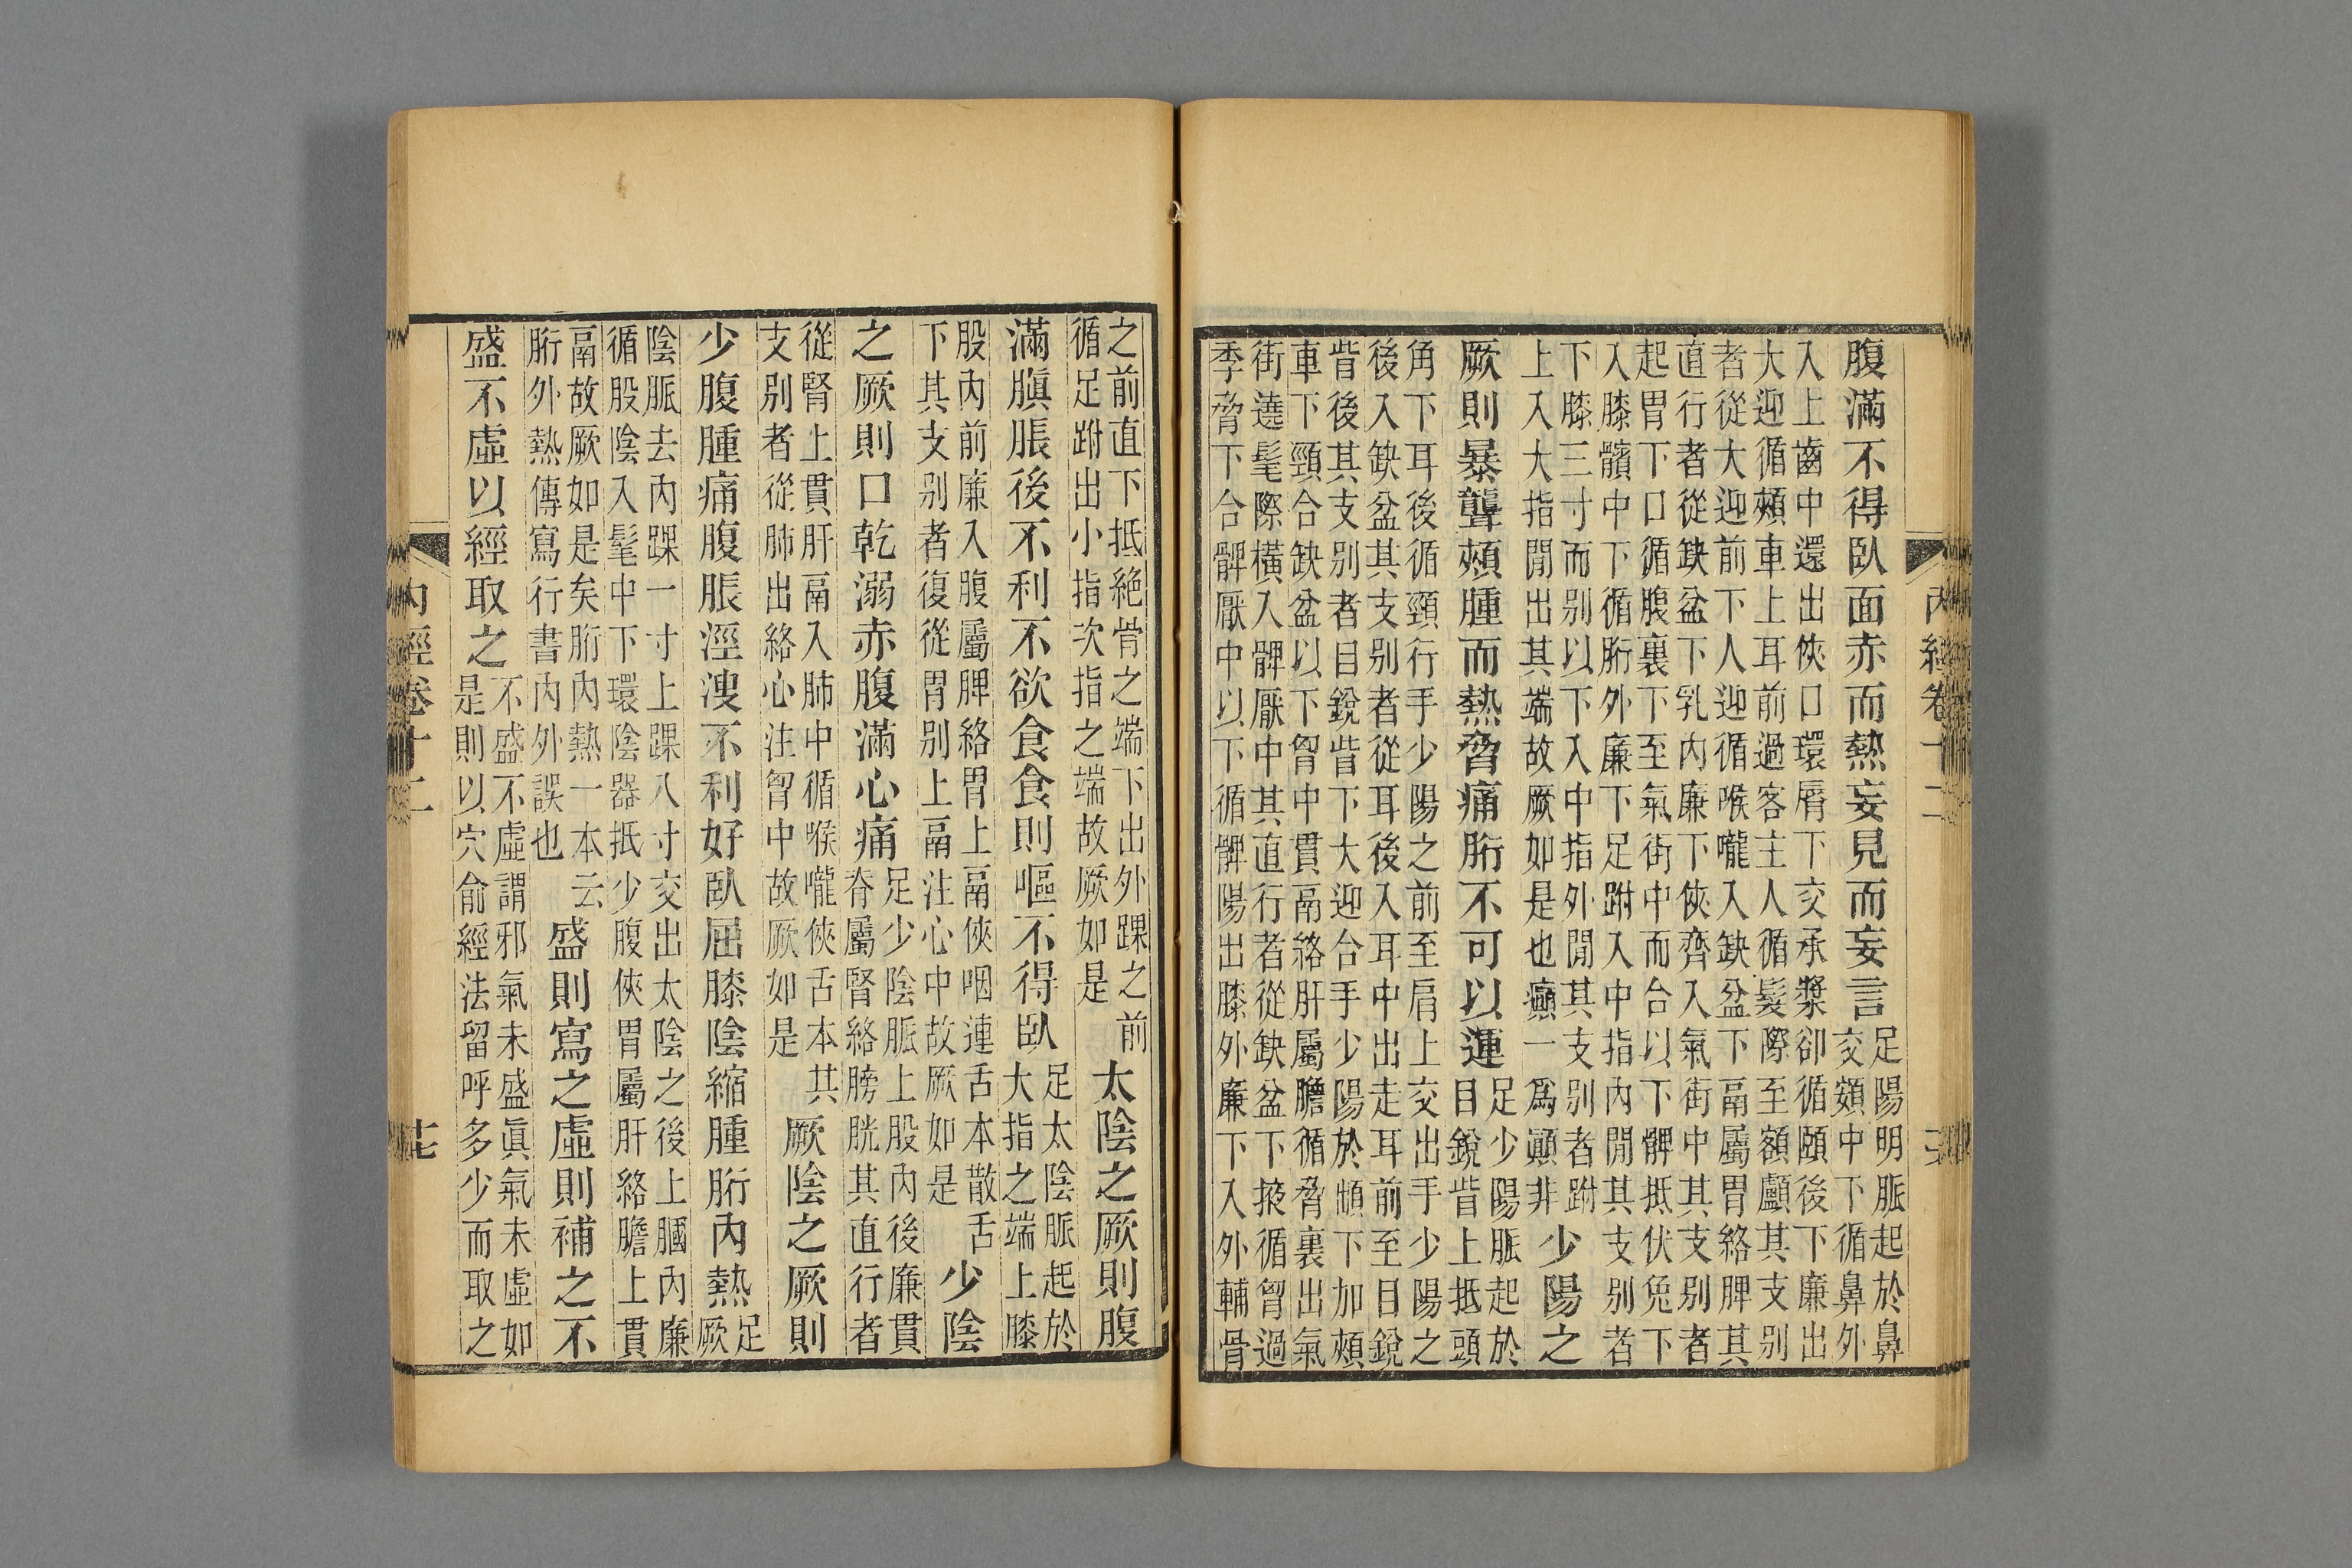 內經卷十二
腹滿不得臥面赤而熱妄見而妄言
足陽明脈起於鼻
交頞中下循鼻外
入上齒中還出俠口環脣下交承漿卻循頤後下廉出
大迎循頰車上耳前過客主人循髮際至額顱其支別
者從大迎前下人迎循喉嚨入缺盆下鬲屬胃絡脾其
直行者從缺盆下乳內廉下俠齊入氣街中其支別者
起胃下口循腹裏下至氣街中而合以下髀抵伏兔下
入膝髕中下循胻外廉下足跗入中指內閒其支別者
下膝三寸而別以下入中指外閒其支別者跗
上入大指閒出其端故厥如是也癲一爲顚非
少陽之
厥則暴聾頰腫而熱脅痛胻不可以運
足少陽脈起於
目銳眥上抵頭
角下耳後循頸行手少陽之前至肩上交出手少陽之
後入缺盆其支別者從耳後入耳中出走耳前至目銳
眥後其支別者目銳眥下大迎合手少陽於䪼下加頰
車下頸合缺盆以下胷中貫鬲絡肝屬膽循脅裏出氣
街遶髦際橫入髀厭中其直行者從缺盆下掖循胷過
季脅下合髀厭中以下循髀陽出膝外廉下入外輔骨
之前直下抵絶骨之端下出外踝之前
循足跗出小指次指之端故厥如是
太陰之厥則腹
滿䐜脹後不利不欲食食則嘔不得臥
足太陰脈起於
大指之端上膝
股內前廉入腹屬脾絡胃上鬲俠咽連舌本散舌
下其支別者復從胃別上鬲注心中故厥如是
少陰
之厥則口乾溺赤腹滿心痛
足少陰脈上股內後廉貫
脊屬腎絡膀胱其直行者
從腎上貫肝鬲入肺中循喉嚨俠舌本其
支別者從肺出絡心注胷中故厥如是
厥陰之厥則
少腹腫痛腹脹涇溲不利好臥屈膝陰縮腫胻內熱
足
厥
陰脈去內踝一寸上踝八寸交出太陰之後上膕內廉
循股陰入髦中下環陰器抵少腹俠胃屬肝絡膽上貫
鬲故厥如是矣胻內熱一本云
胻外熱傳寫行書內外誤也
盛則寫之虛則補之不
盛不虛以經取之
不盛不虛謂邪氣未盛眞氣未虛如
是則以穴俞經法留呼多少而取之
內經卷十二